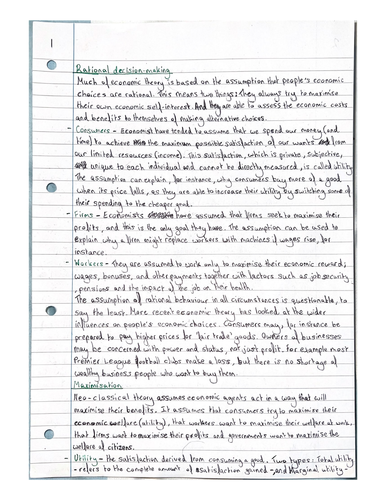 1
Rational decision-making
Much of economic theory is based on the assumption that people's economic
choices are rational. This means two things: they always try to maximise
their own economic self-interest. And they are able to assess the economic costs
and benefits to themselves of making alternative choices.
- Consumers - Economist have tended to assume that we spend our money (and
time) to achieve the maximum possible satisfaction of our wants from
our limited resources (income). This satisfaction, which is private, subjective,
and unique to each individual and cannot be directly measured, is called utility.
The assumption can explain, for instance, why consumers buy more of a good
when its price falls, as they are able to increase their utility by switching some of
their spending to the cheaper good.
- Firms - Economists have assumed that firms seek to maximise their
profits, and this is the only goal they have. The assumption can be used to
explain why a firm might replace workers with machines if wages rise, for
instance.
- Workers - they are assumed to work only to maximise their economic reward;
wages, bonuses, and other payments together with factors such as job security,
pensions and the impact of the job on their health.
The assumption of rational behaviour in all circumstances is questionable, to
say the least. More recent economic theory has looked at the wider
influences on people's economic choices. Consumers may, for instance be
prepared to pay higher prices for 'fair trade' goods. Owners of businesses
may be concerned with power and status, not just profit, for example most
Premier League football clubs make a loss, but there is no shortage of
wealthy business people who want to buy them.
Maximisation
Neo-classical theory assumes economic agents act in a way that will
maximise their benefits. It assumes that consumers try to maximise their
economic welfare (utility), that workers want to maximise their welfare at work,
that firms want to maximise their profits and governments want to maximise the
welfare of citizens.
- Utility - the satisfaction derived from consuming a good. Two types: Total utility
- refers to the complete amount of satisfaction gained - and Marginal utility -